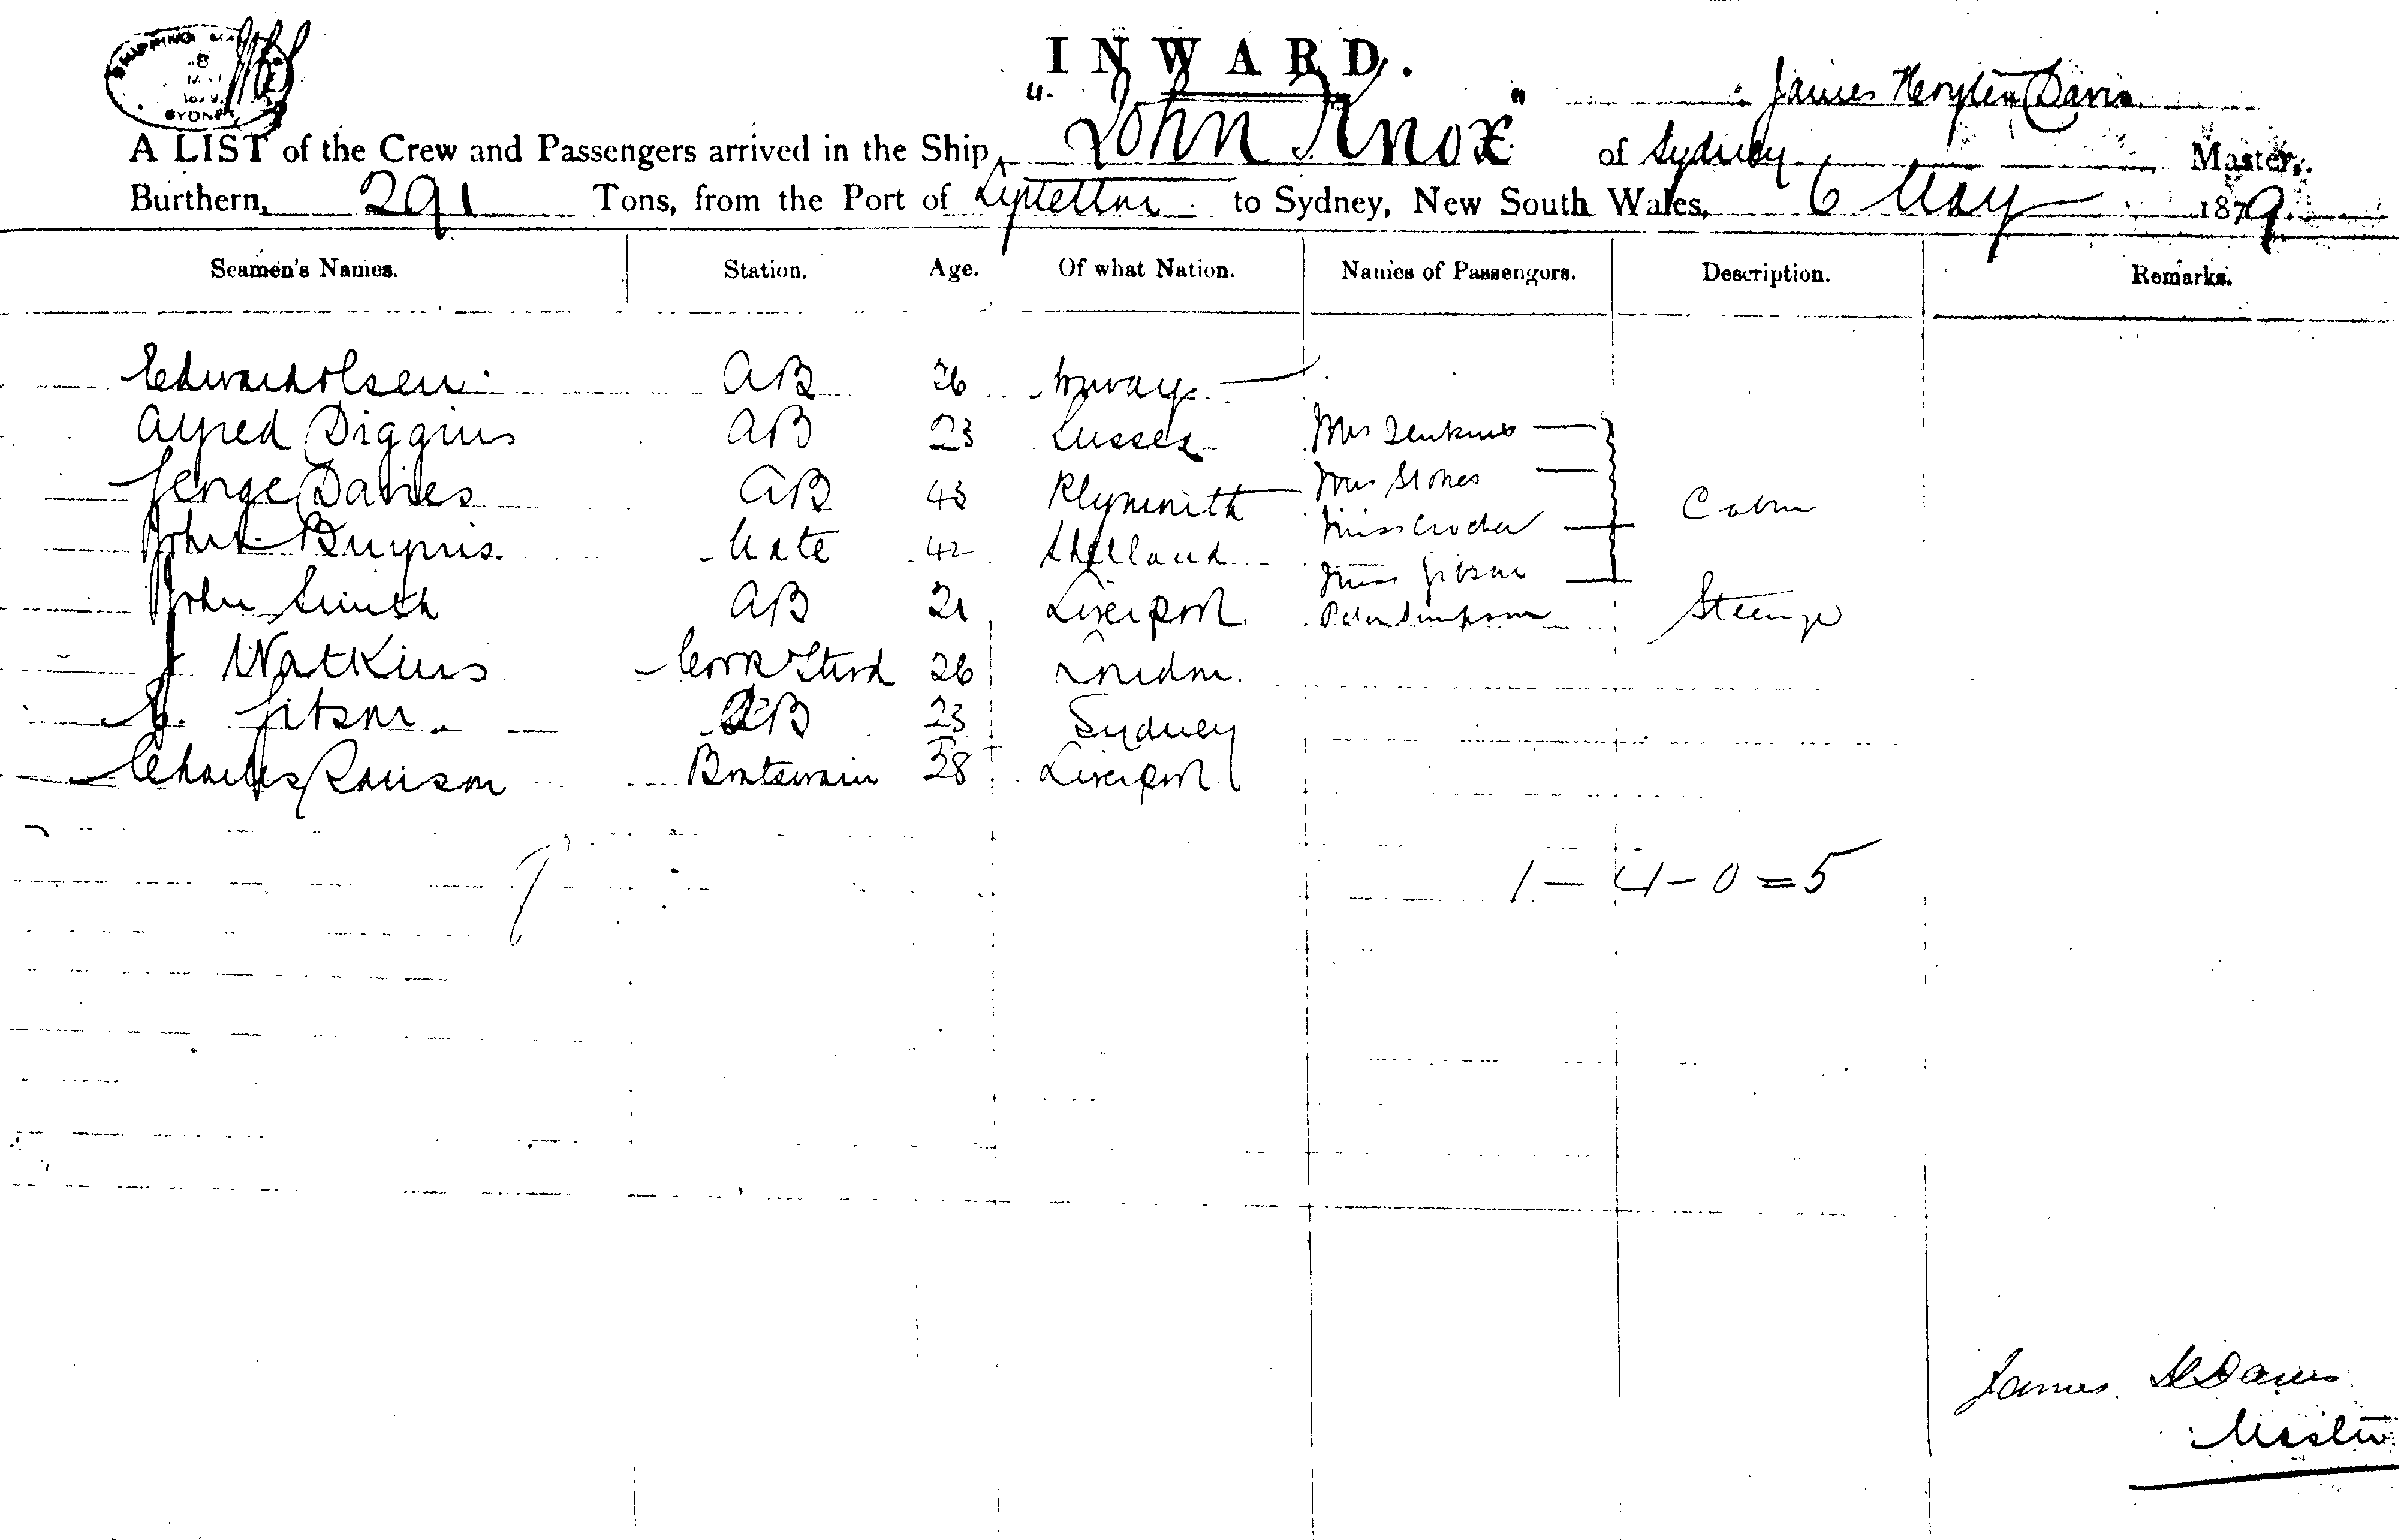 SHIPPING
8
SYDNEY
INWARD.
James Davis
A LIST of the Crew and Passengers arrived in the Ship, "John Knox" of Sydney Master,
Burthern, 291 Tons, from the Port of Lyttelton to Sydney, New South Wales, 6 May 1879
Seamen's Names. Station. Age. Of what Nation. Names of Passengers. Description. Remarks.
Edward Olsen AB 26 Norway
Alfred Diggins AB 23 Sussex Mrs Jenkins
George Davies AB 43 Plymouth Mrs Stones Cabin
John Mate 42 Shetland Miss
Miss Gibson
John Smith AB 21 Liverpool Peter Simpson Steerage
J Watkins Cook & Stwd 26 London
E. Gibson AB 23 Sydney
Charles Boatswain 28 Liverpool
1 - 4 - 0 = 5
James H Davis
Master